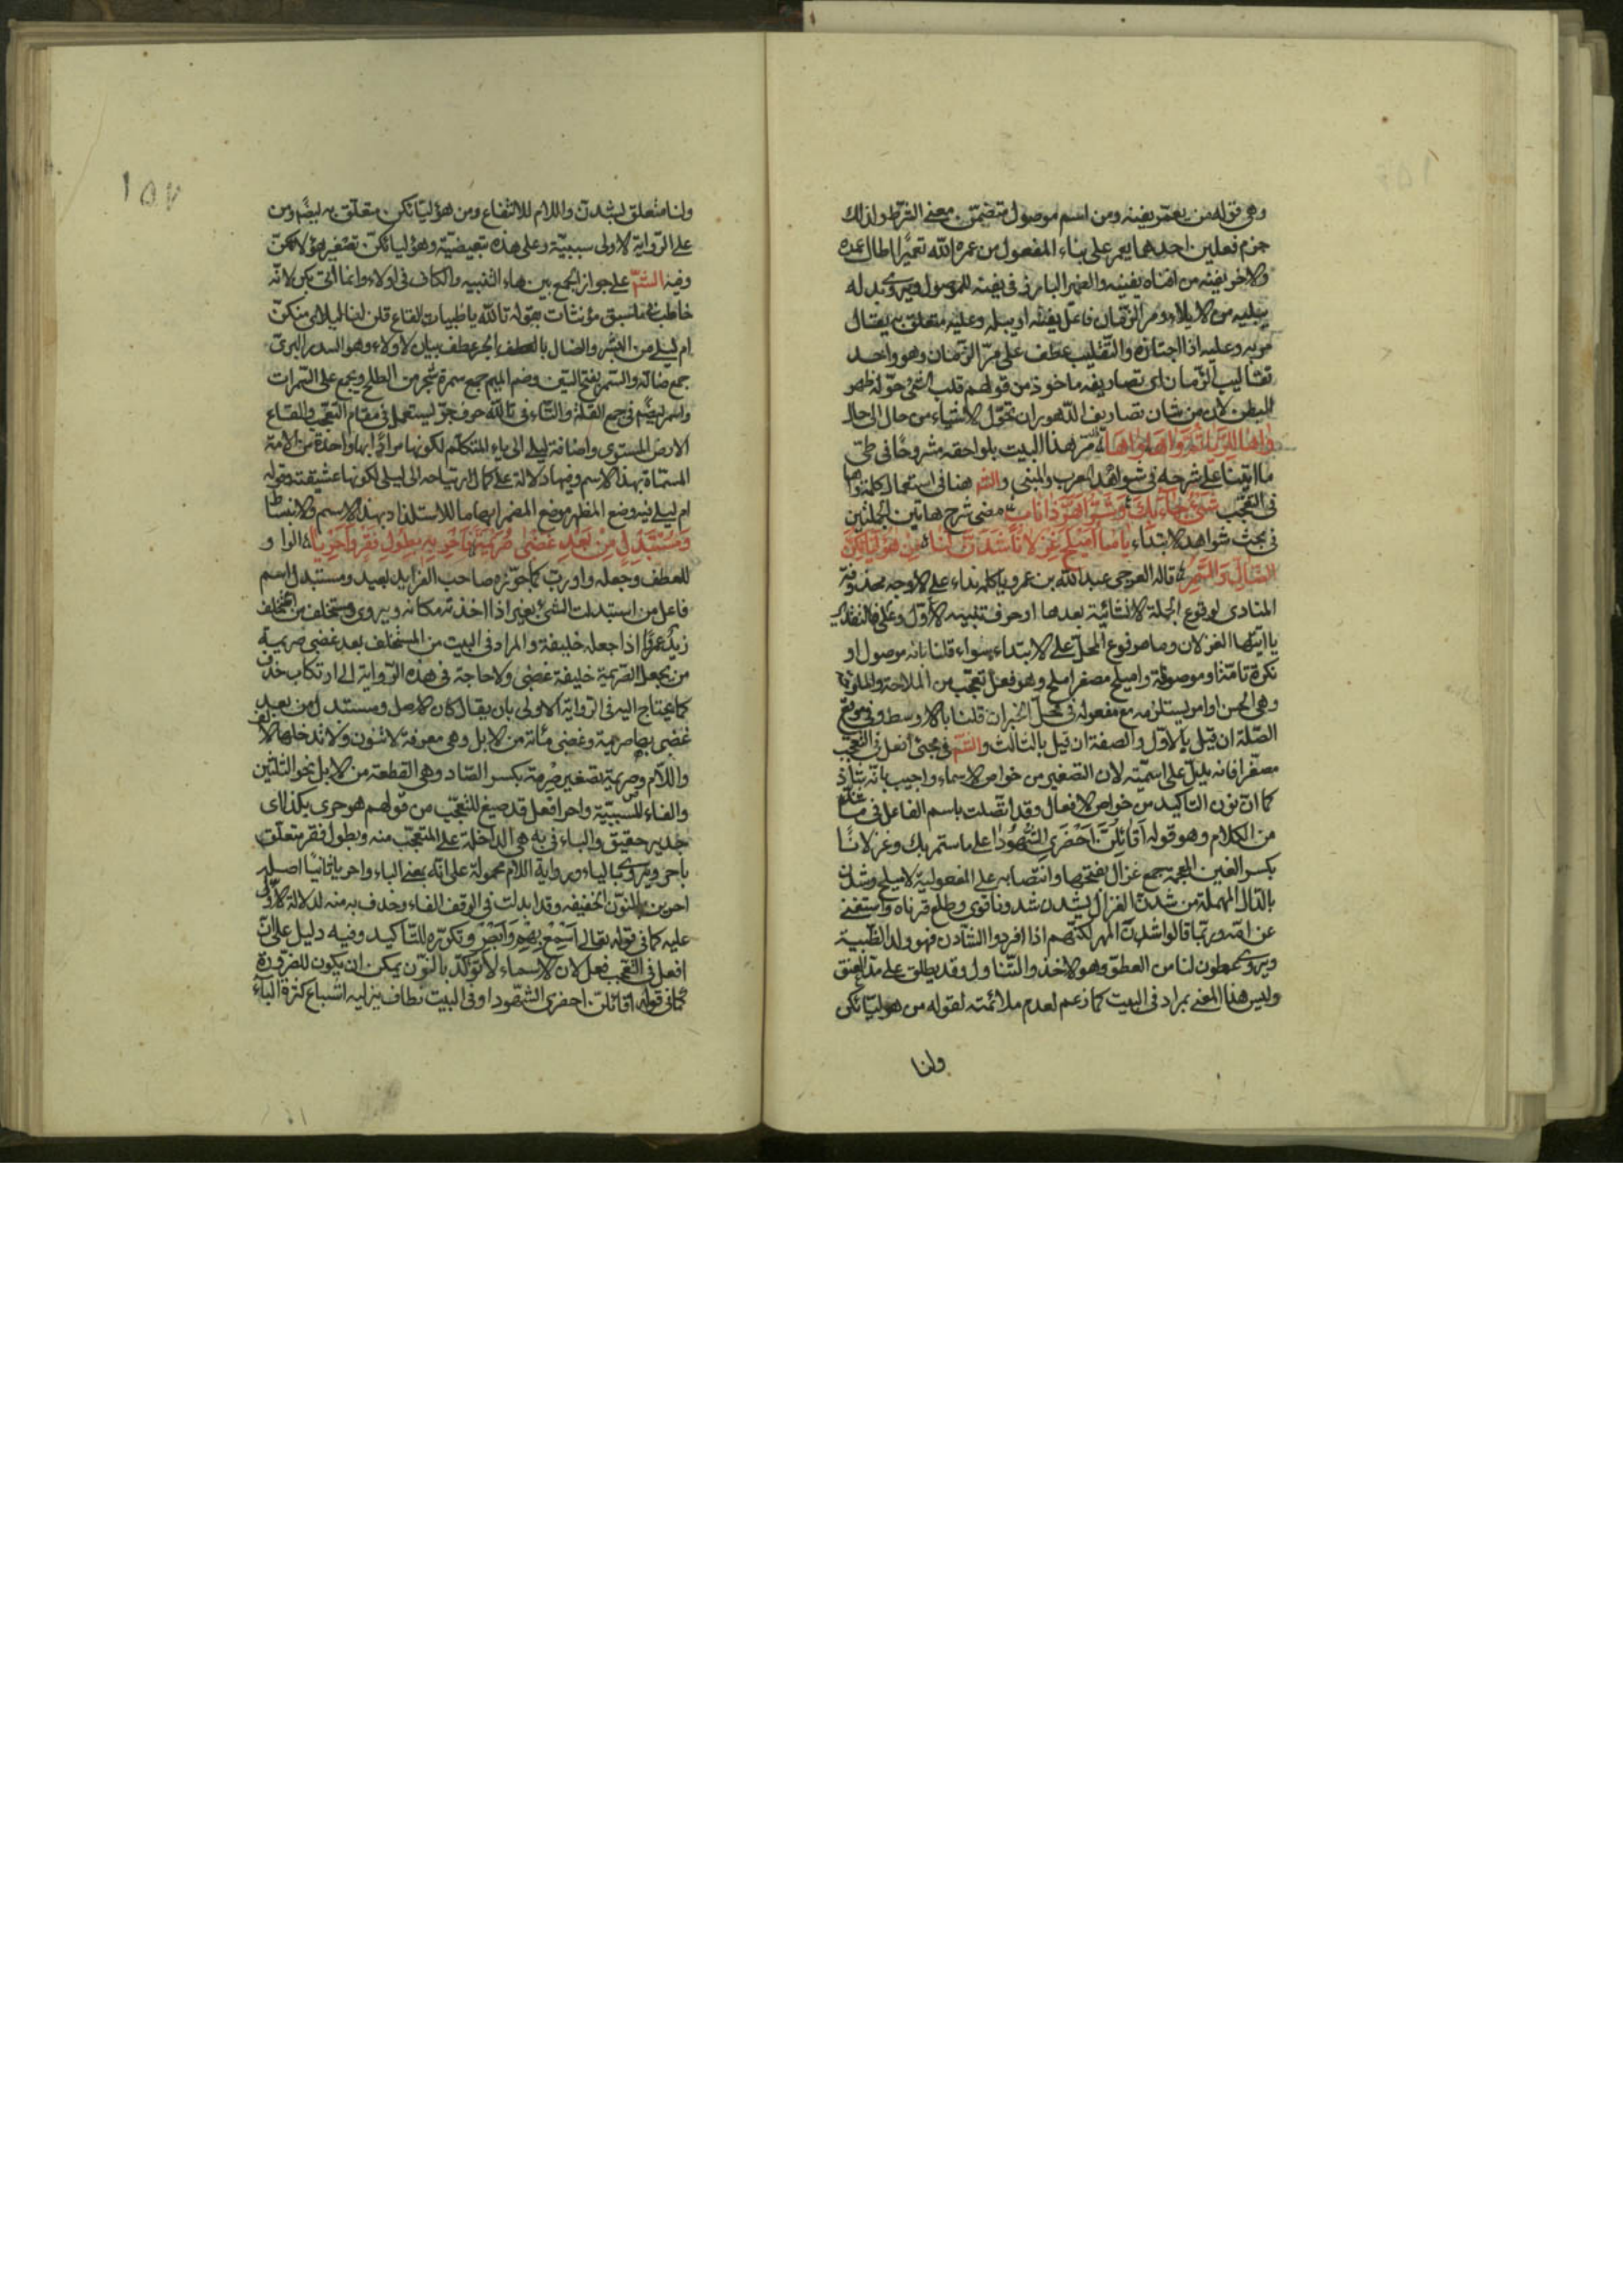 وهي قوله من يعمر يفنه ومن اسم موصول متضمن معنى الشرط ولذلك
جزم فعلين احدهما يعمر على بناء المفعول من عمره الله تعميرا اطال عمره
والاخر يفنه من افناه يفنيه والضمير البارز في يفنه للموصول ويروى بدله
يبليه من الابلاء ومر الزمان فاعل يفنه او يبله وعليه متعلق به يقال
مر به وعليه اذا اجتازه والتقليب عطف على مر الزمان وهو واحد
تقاليب الزمان اى تصاريفه ماخوذ من قولهم قلب الشئ حوله ظهر
البطن لان من شان تصاريف الدهور ان تحول الاشياء من حال الى حال
واها لليلى ثم واها واها مر هذا البيت بلواحقه مشروحا في طى
ما اتينا على شرحه في شواهد المعرب والمبني والشم هنا في استعمال كلمة واها
في التعجب شئ جاء بك وشر اهر ذا ناب مضى شرح هاتين الجملتين
في بحث شواهد الابتداء ياما اميلح غزلانا شدن لنا من هوليائكن
الضال والسمر قاله العرجى عبد الله بن عمرو يا كلمة نداء على الاوجه محذوفة
المنادى لوقوع الجملة الانشائية بعدها او حرف تنبيه الاول وعلى فالتقدير
يا ايتها الغزلان وما مرفوع المحل على الابتداء سواء قلنا بانه موصول او
نكرة تامة او موصوفة واميلح مصغر املح وهو فعل تعجب من الملاحة
وهي الحسن او امر يستلزمه مع مفعوله في محل الخبر ان قلنا بالاوسط وفي موقع
الصلة ان قيل بالاول والصفة ان قيل بالثالث والشم في مجئ افعل في التعجب
مصغرا فانه يدل على اسميته لان التصغير من خواص الاسماء واجيب بانه شاذ
كما ان نون التاكيد من خواص الافعال وقد اتصلت باسم الفاعل في
من الكلام وهو قوله اقائلن احضرى الشهودا على ما ستمر بك وغزلانا
بكسر الغين المعجمة جمع غزال بفتحها وانتصابه على المفعولية لاميلح وشدن
بالدال المهملة من شدن الغزال يشدن شدونا قوى وطلع قرناه واستغنى
عن امه وربما قالوا شدن المهر لكنهم اذا افردوا الشادن فهو ولد الظبية
ويروى عطون لنا من العطو وهو الاخذ والتناول وقد يطلق على مد العنق
وليس هذا المعنى بمراد في البيت كما زعم لعدم ملائمته لقوله من هوليائكن
ولنا
١٥٧
ولنا متعلق بشدن واللام للانتفاع ومن هؤليائكن متعلق به ايضا ومن
على الرواية الاولى سببية وعلى هذه تبعيضية وهؤليائكن تصغير هؤلائكن
وفيه الشم على جواز الجمع بين هاء التنبيه والكاف في اولاء وانما اتى بكن لانه
خاطب فيما سبق مؤنثات بقوله تالله يا ظبيات القاع قلن لنا ليلاى منكن
ام ليلى من البشر والضال بالعطف الجر عطف بيان لاولاء وهو السدر البرى
جمع ضالة والسمر بفتح السين وضم الميم جمع سمرة شجر من الطلح ويجمع على السمرات
واسمر ايضا في جمع القلة والتاء في تالله حرف جر يستعمل في مقام التعجب والقاع
الارض المستوى واضافة ليلى الى ياء المتكلم لكونها مرادا بها واحدة من الامة
المسماة بهذا الاسم وفيها دلالة على كمال ارتياحه الى ليلى لكونها عشيقته وقوله
ام ليلى فيه وضع المظهر موضع المضمر ايهاما للاستلذاذ بهذا الاسم والانبساط
ومستبدل من بعد غضبى صريمة فاحر به بطول فقر واحريا الواو
للعطف وجعله واو رب كما جوزه صاحب الفرايد بعيد ومستبدل اسم
فاعل من استبدلت الشئ بغيره اذا اخذته مكانه ويروى ومستخلف من استخلف
زيد عمروا اذا جعله خليفة والمراد في البيت من المستخلف بعد غضبى صريمة
من يجعل الصريمة خليفة غضبى ولا حاجة في هذه الرواية الى ارتكاب حذف
كما يحتاج اليه في الرواية الاولى بان يقال كان الاصل ومستبدل من بعد
غضبى بها صريمة وغضبى مأة من الابل وهي معرفة لا تنون ولا تدخلها الالف
واللام وصريمة تصغير صرمة بكسر الصاد وهي القطعة من الابل نحو الثلثين
والفاء للسببية واحر افعل قد صيغ للتعجب من قولهم هو حرى بكذا اى
جدير حقيق والباء في به هي الداخلة على المتعجب منه وبطول فقر متعلق
باحر ويروى بالياء ورواية اللام محمولة على انه بمعنى الباء واحريا ثانيا اصله
احرين بالنون الخفيفة وقد ابدلت في الوقف الفاء وحذف به منه لدلالة الاول
عليه كما في قوله تعالى اسمع بهم وابصر وتكرره للتأكيد وفيه دليل على ان
افعل في التعجب فعل لان الاسماء لا تؤكد بالنون يمكن ان يكون للضرورة
كما في قوله اقائلن احضرى الشهودا وفي البيت اشباع كسرة الباء